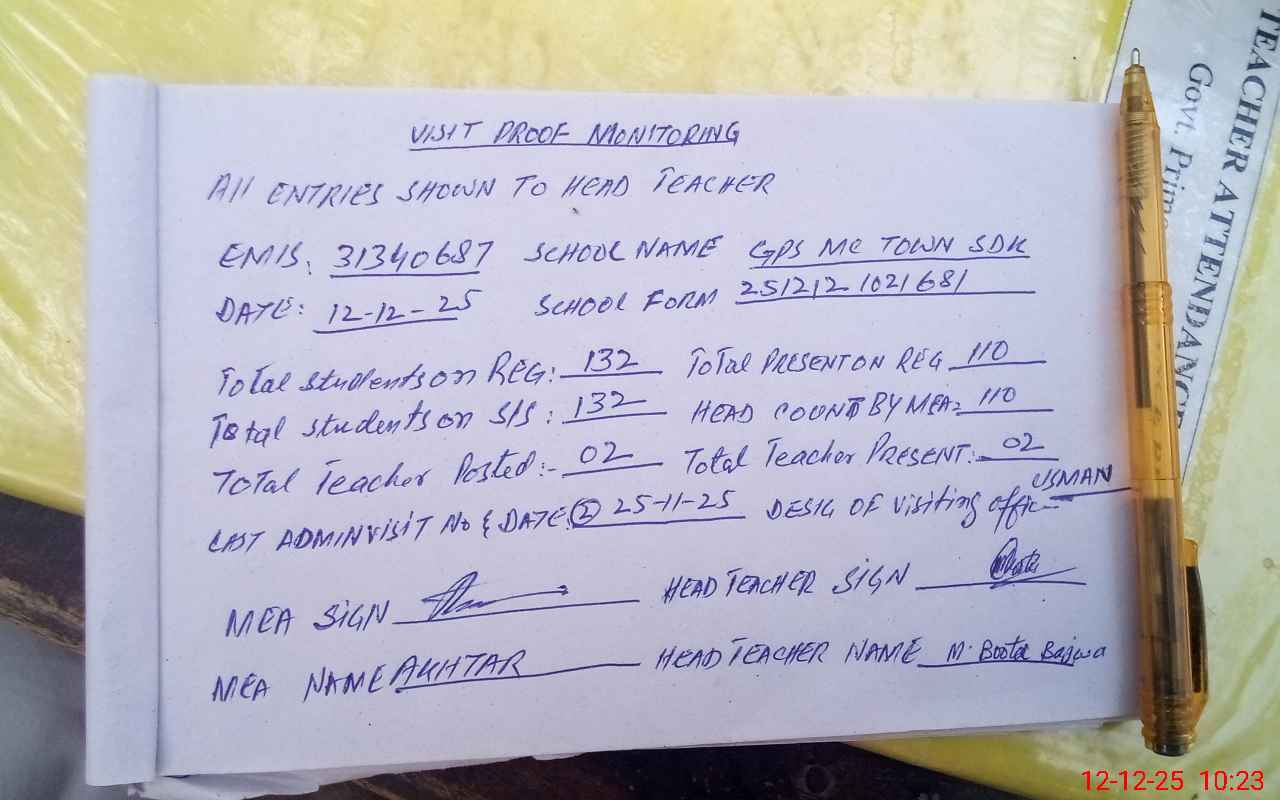 VISIT PROOF MONITORING
All ENTRIES SHOWN TO HEAD TEACHER
EMIS: 31340687 SCHOOL NAME GPS MC TOWN SDK
DATE: 12-12-25 SCHOOL FORM 251212 1021681
Total students on REG: 132 Total PRESENT ON REG 110
Total students on SIS: 132 HEAD COUNT BY MEA: 110
Total Teacher Posted:- 02 Total Teacher PRESENT:- 02
LAST ADMIN VISIT No & DATE: ② 25-11-25 DESIG OF Visiting offic USMAN
MEA SIGN HEAD TEACHER SIGN
MEA NAME AKHTAR HEAD TEACHER NAME M. Boota Bajwa
TEACHER ATTENDANCE
Govt. Prim
12-12-25 10:23